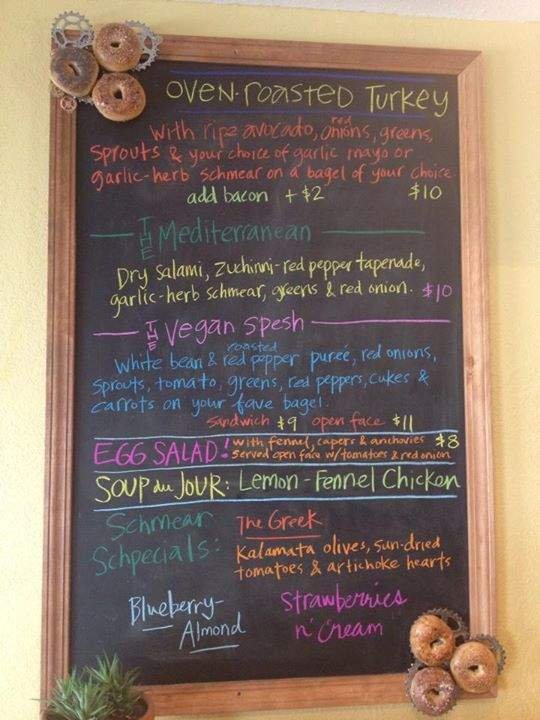 OVEN-roasted Turkey
with ripe avocado, red onions, greens,
Sprouts & your choice of garlic mayo or
garlic-herb schmear on a bagel of your choice.
add bacon + $2 $10
THE Mediterranean
Dry Salami, Zuchinni-red pepper tapenade,
garlic-herb schmear, greens & red onion. $10
THE Vegan Spesh
White bean & roasted red pepper pureé, red onions,
Sprouts, tomato, greens, red peppers, cukes &
carrots on your fave bagel.
Sandwich $9 open face $11
EGG SALAD! with fennel, capers & anchovies $8
Served open face w/tomatoes & red onion
SOUP du JOUR: Lemon-Fennel Chicken
Schmear
Schpecials:
The Greek
Kalamata olives, Sun-dried
tomatoes & artichoke hearts
Blueberry-
Almond
Strawberries
n' Cream